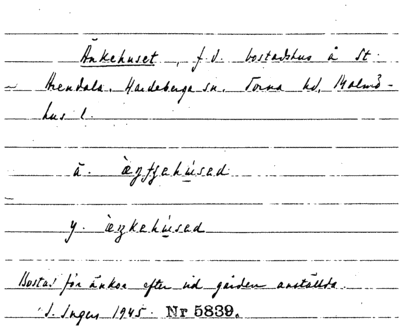 Änkehuset, f.d. bostadshus å St.
Arendala. Hardeberga sn. Torna hd, Malmö-
hus l.
ä. àŋfjehúsad
y. àŋkehúsad
Bostad för änkor efter vid gården anställda.
S. Ingers 1945. Nr 5839.